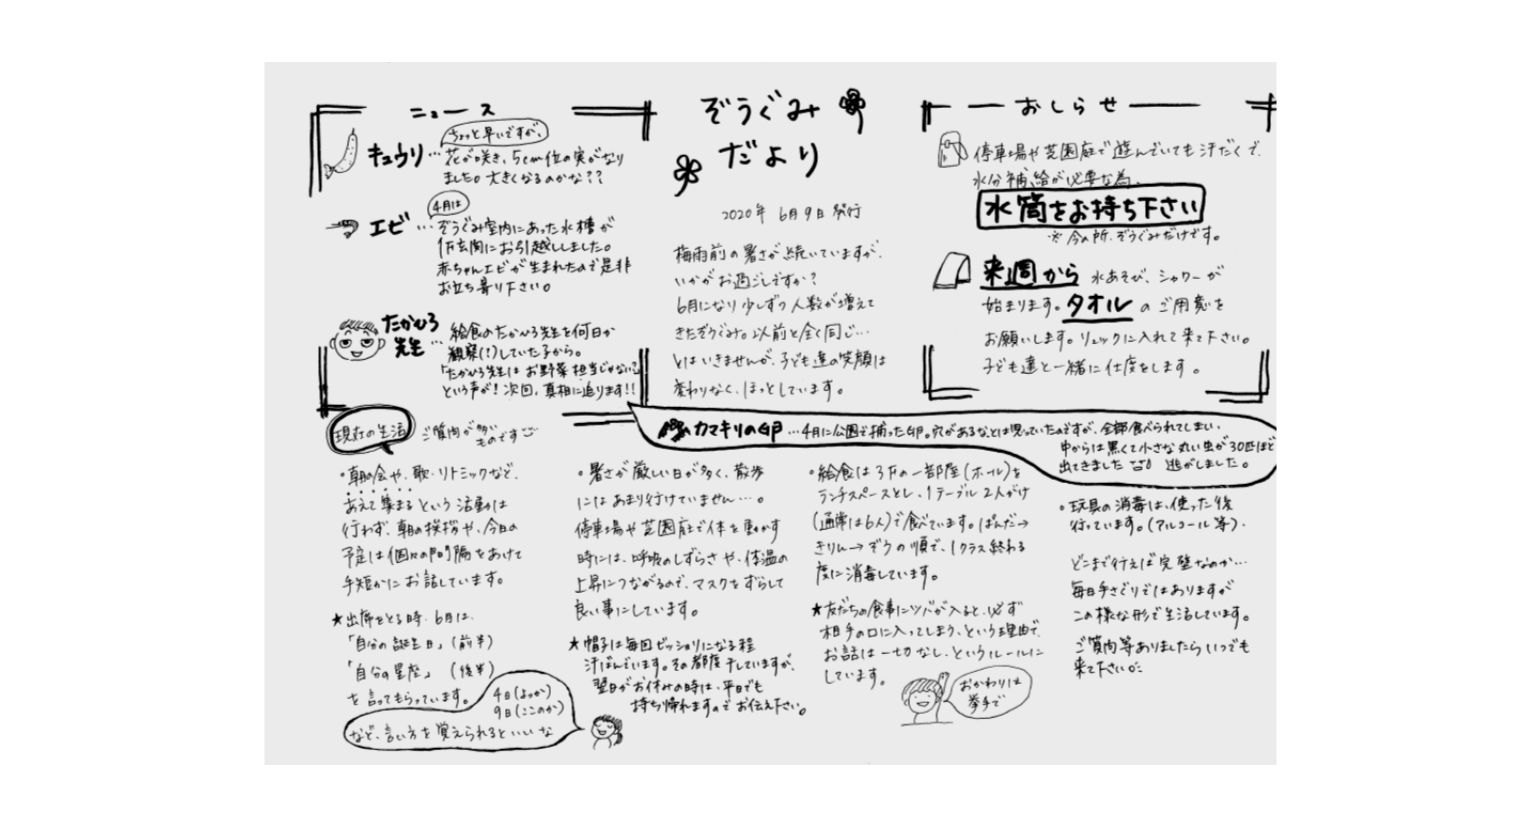 ぞうぐみ
だより
2020年 6月9日 発行
梅雨前の暑さが続いていますが、
いかがお過ごしですか?
6月になり少しずつ人数が増えて
きたぞうぐみ。以前と全く同じ…
とはいきませんが、子ども達の笑顔は
変わりなく、ほっとしています。
ニュース
ちょっと早いですが、
キュウリ…花が咲き、5cm位の実がなり
ました。大きくなるのかな??
4月は
エビ…ぞうぐみ室内にあった水槽が
1F玄関にお引越ししました。
赤ちゃんエビが生まれたので是非
お立ち寄り下さい。
たかひろ
先生…給食のたかひろ先生を何日か
観察(!)していた子から。
「たかひろ先生はお野菜担当じゃない?」
という声が! 次回、真相に迫ります!!
おしらせ
停車場や芝園庭で遊んでいても汗だくで、
水分補給が必要な為、
水筒をお持ち下さい
※今の所、ぞうぐみだけです。
来週から 水あそび、シャワーが
始まります。タオルのご用意を
お願いします。リュックに入れて来て下さい。
子ども達と一緒に仕度をします。
カマキリの卵…4月に公園で捕った卵。穴があるなとは思っていたのですが、全部食べられてしまい、
中からは黒くて小さな丸い虫が30匹ほど
出てきました 逃がしました。
現在の生活 ご質問が多い
ものです
・朝の会や、歌・リトミックなど、
あえて集まるという活動は
行わず、朝の挨拶や、今日の
予定は個々の間隔をあけて
手短かにお話しています。
★出席をとる時、6月は、
「自分の誕生日」(前半)
「自分の星座」(後半)
を言ってもらっています。
4日(よっか)
9日(ここのか)
など、言い方を覚えられるといいな
・暑さが厳しい日が多く、散歩
にはあまり行けていません…。
停車場や芝園庭で体を動かす
時には、呼吸のしずらさや、体温の
上昇につながるので、マスクをずらして
良い事にしています。
★帽子は毎回ビッショリになる程
汗ばんでいます。その都度干していますが、
翌日がお休みの時は、平日でも
持ち帰れますのでお伝え下さい。
・給食は3Fの一部屋(ホール)を
ランチスペースとし、1テーブル2人がけ
(通常は6人)で食べています。ぱんだ→
きりん→ぞうの順で、1クラス終わる
度に消毒しています。
★友だちの食事にツバが入ると、必ず
相手の口に入ってしまう、という理由で、
お話は一切なし、というルールに
しています。
おかわりは
挙手で
・玩具の消毒は、使った後
行っています。(アルコール等)、
どこまで行えば完璧なのか…
毎日手さぐりではありますが
この様な形で生活しています。
ご質問等ありましたらいつでも
来て下さい